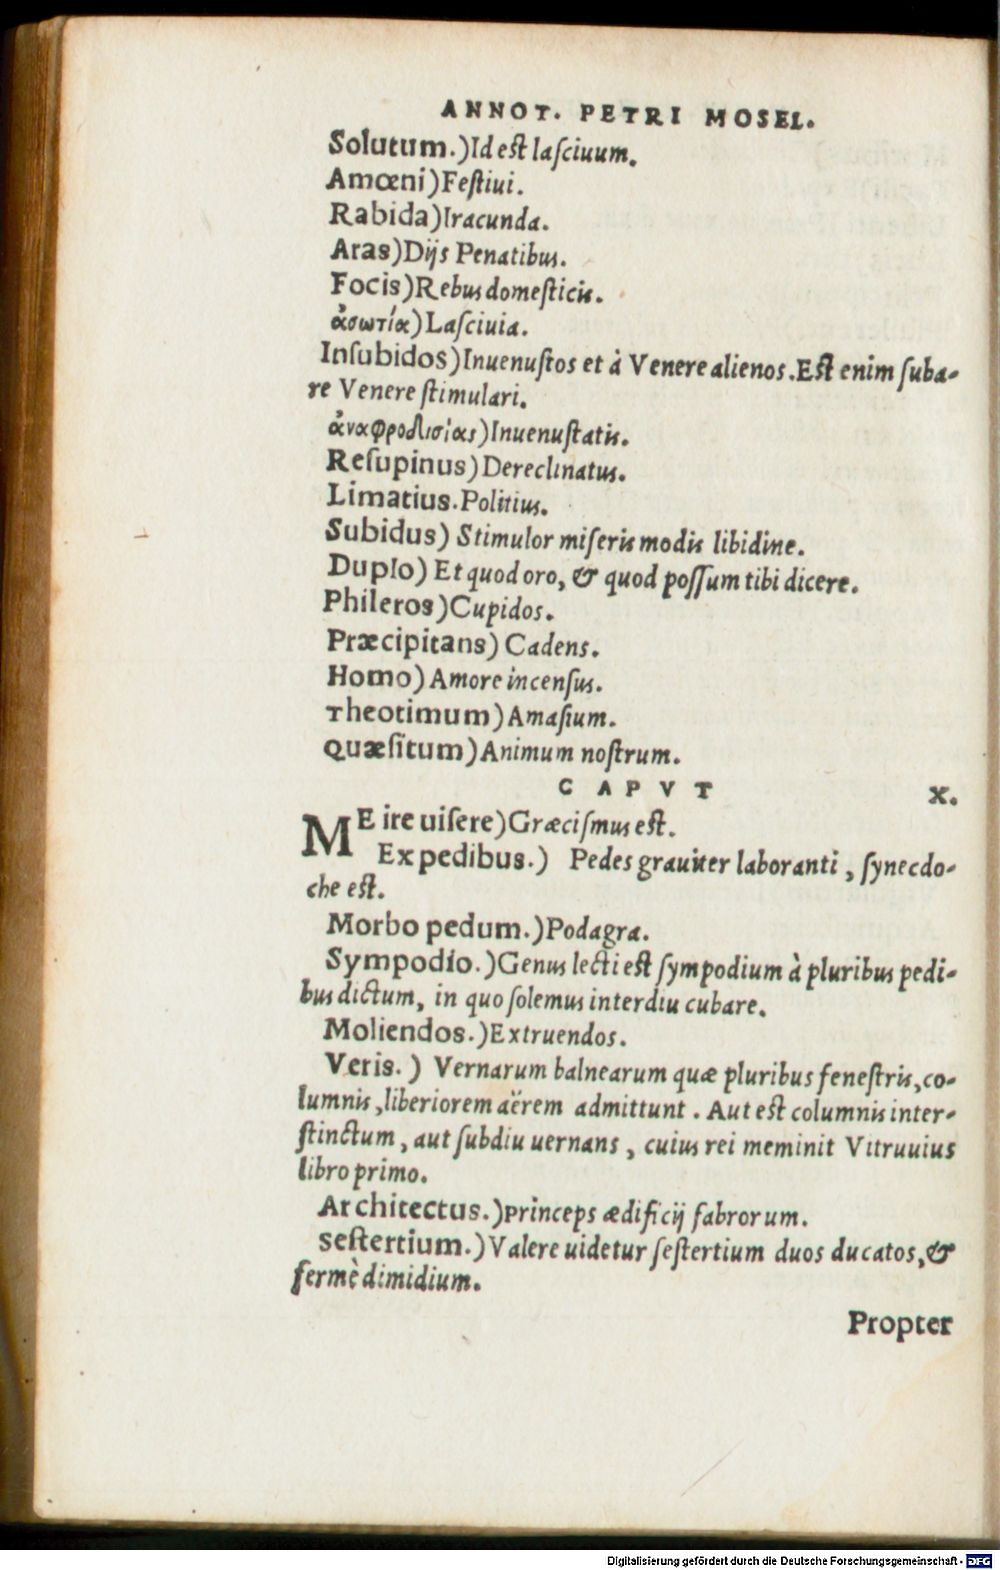 ANNOT. PETRI MOSEL.
Solutum.)Id est lasciuum.
Amœni)Festiui.
Rabida)Iracunda.
Aras)Dijs Penatibus.
Focis)Rebus domesticis.
ἀσωτία)Lasciuia.
Insubidos)Inuenustos et à Venere alienos.Est enim suba-
re Venere stimulari.
ἀναφροδισίας)Inuenustatis.
Resupinus)Dereclinatus.
Limatius.Politius.
Subidus) Stimulor miseris modis libidine.
Duplo) Et quod oro, & quod possum tibi dicere.
Phileros)Cupidos.
Præcipitans) Cadens.
Homo) Amore incensus.
Theotimum)Amasium.
Quæsitum)Animum nostrum.
CAPVT X.
ME ire uisere)Græcismus est.
Ex pedibus.) Pedes grauiter laboranti, synecdo-
che est.
Morbo pedum.)Podagra.
Sympodio.)Genus lecti est sympodium à pluribus pedi-
bus dictum, in quo solemus interdiu cubare.
Moliendos.)Extruendos.
Veris.) Vernarum balnearum quæ pluribus fenestris,co-
lumnis,liberiorem aërem admittunt. Aut est columnis inter-
stinctum, aut subdiu uernans, cuius rei meminit Vitruuius
libro primo.
Architectus.)princeps ædificij fabrorum.
sestertium.)Valere uidetur sestertium duos ducatos,&
fermè dimidium.
Propter
Digitalisierung gefördert durch die Deutsche Forschungsgemeinschaft - DFG